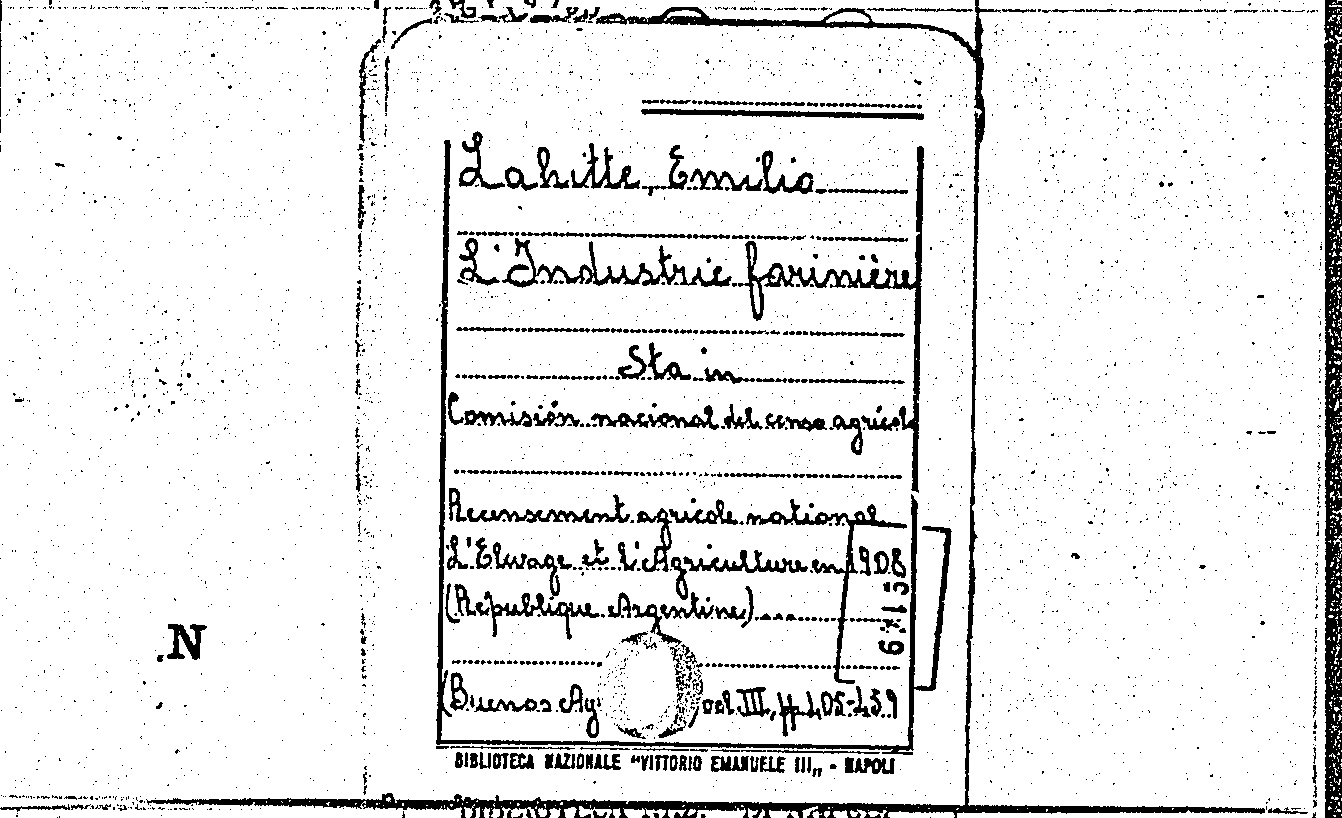 Lahitte, Emilio
L'Industrie farinière
Sta in
Comisión nacional del censo agricolo
Recensement agricole national
L'Elevage et l'Agriculture en 1908
(Republique Argentine)....
(Buenos Ay vol III, pp 405-459
BIBLIOTECA NAZIONALE "VITTORIO EMANUELE III„ - NAPOLI
N